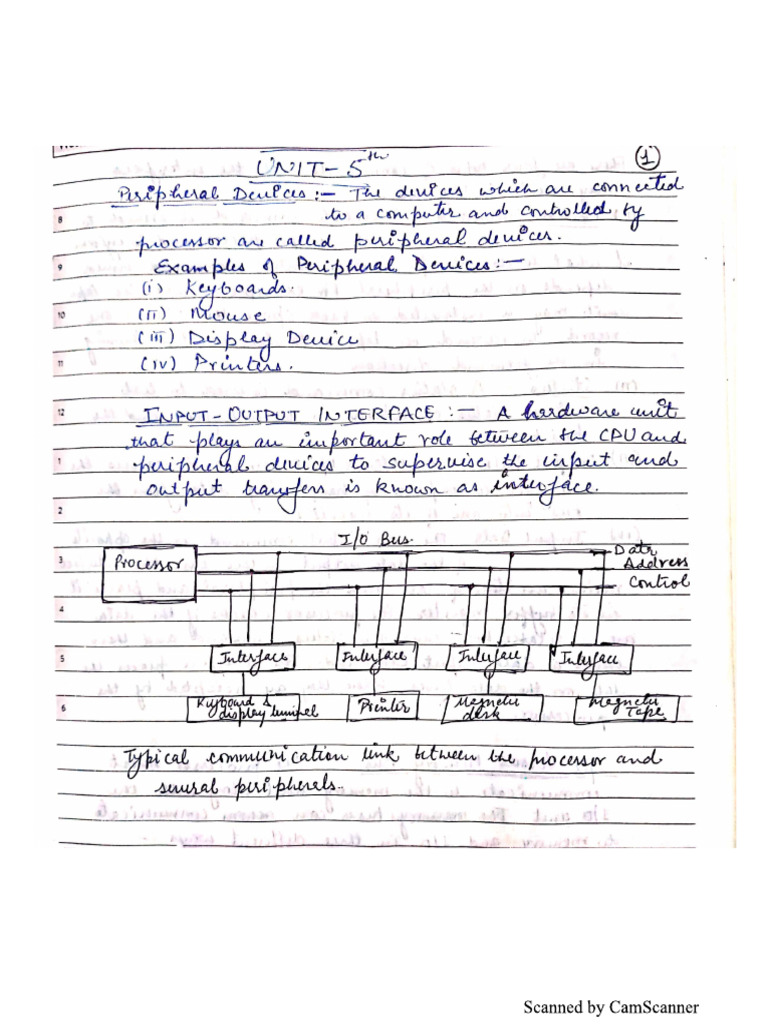 1
UNIT-5th
Peripheral Devices:- The devices which are connected
to a computer and controlled by
processor are called peripheral devices.
Examples of Peripheral Devices:-
(i) Keyboards.
(ii) Mouse
(iii) Display Device
(iv) Printers.
INPUT-OUTPUT INTERFACE:- A hardware unit
that plays an important role between the CPU and
peripheral devices to supervise the input and
output transfers is known as interface.
I/O Bus.
Processor
Data
Address
Control
Interface Interface Interface Interface
Keyboard & display terminal
Printer
Magnetic desk
Magnetic Tape
Typical communication link between the processor and
several peripherals.
8
9
10
11
12
1
2
3
4
5
6
Scanned by CamScanner